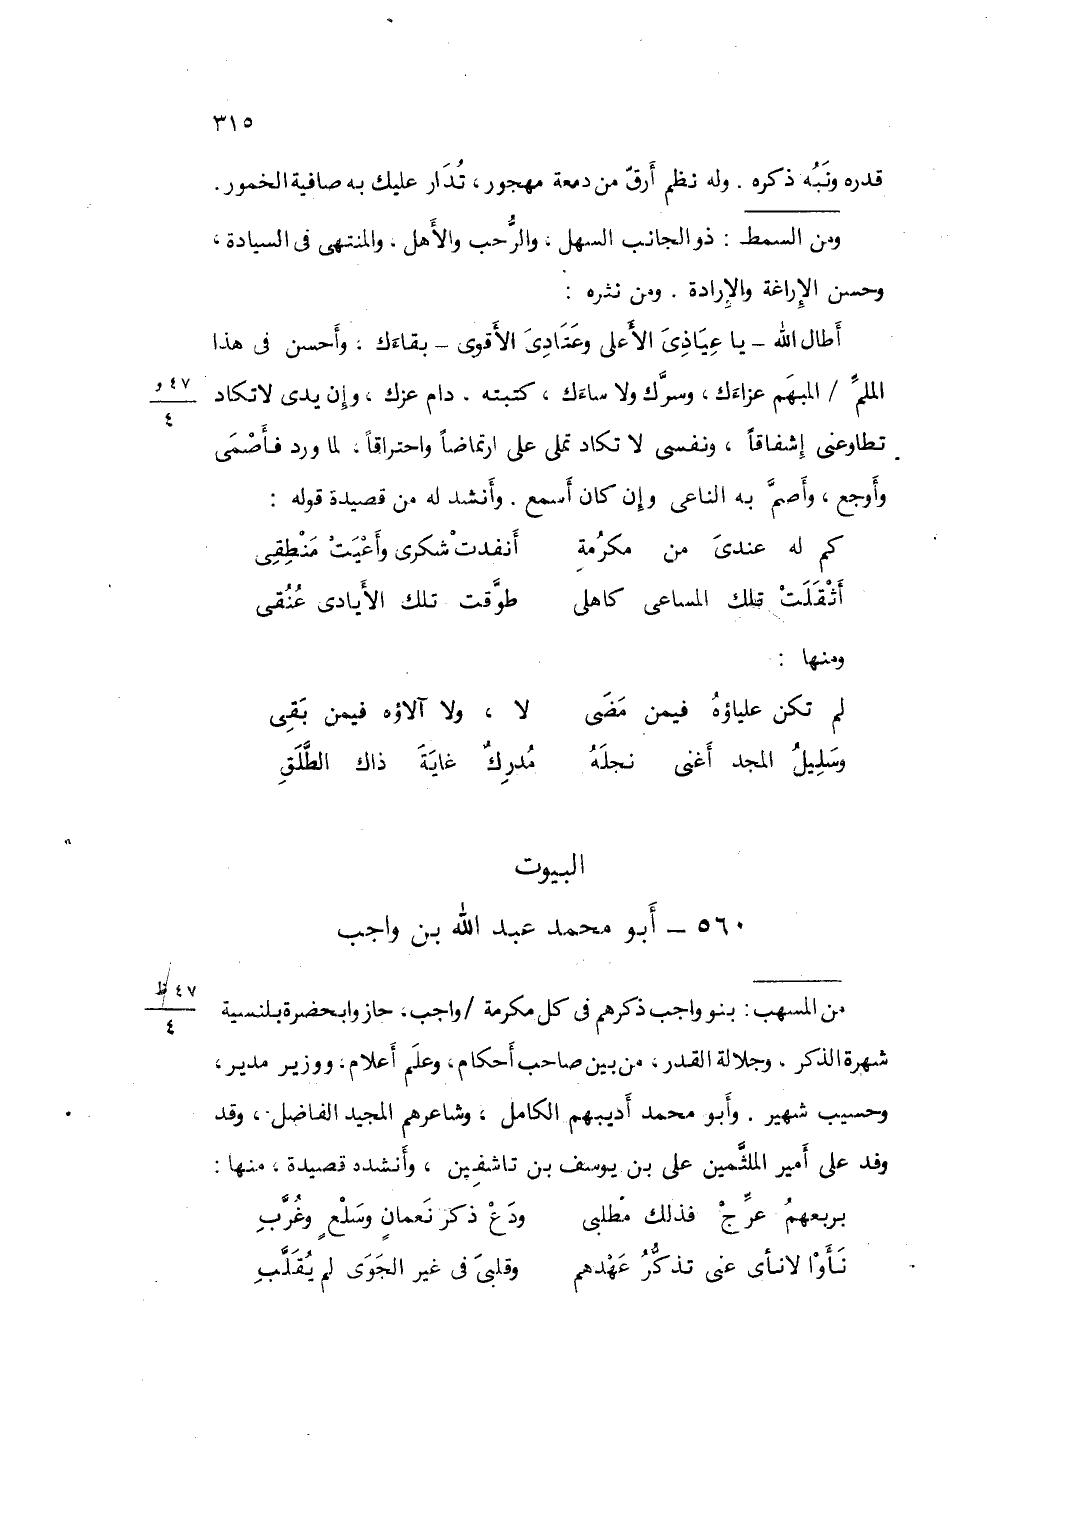 ٣١٥
قدره ونَبُه ذكره . وله نظم أَرقّ من دمعة مهجور ، تُدَار عليك به صافية الخمور .
ومن السمط : ذو الجانب السهل ، والرُّحب والأَهل ، والمنتهى فى السيادة ،
وحسن الإِراغة والإِرادة . ومن نثره :
أَطال الله – يا عِيَاذِىَ الأَعلى وعَتَادِىَ الأَقوى – بقاءَك ، وأَحسن فى هذا
الملمِّ / المبهَم عزاءَك ، وسرَّك ولا ساءَك ، كتبته . دام عزك ، وإِن يدى لاتكاد
٤٧ و
٤
تطاوعنى إِشفاقاً ، ونفسى لا تكاد تملى على ارتماضاً واحتراقاً ، لما ورد فأَصْمَى
وأَوجع ، وأَصمَّ به الناعى وإِن كان أَسمع . وأَنشد له من قصيدة قوله :
كم له عندىَ من مكرُمةٍ أَنفدتْ شكرى وأَعْيَتْ مَنْطِقِى
أَثْقَلَتْ تلك المساعى كاهلى طوَّقت تلك الأَيادى عُنُقى
ومنها :
لم تكن علياؤهُ فيمن مَضَى لا ، ولا آلاؤه فيمن بَقِى
وسَلِيلُ المجد أَغنى نجلَهُ مُدرِكٌ غايَةَ ذاك الطَّلَقِ
البيوت
٥٦٠ – أَبو محمد عبد الله بن واجب
من المسهب : بنو واجب ذكرهم فى كل مكرمة / واجب ، حازوا بحضرة بلنسية
٤٧ ظ
٤
شهرة الذكر ، وجلالة القدر ، من بين صاحب أَحكام ، وعلَم أَعلام ، ووزير مدير ،
وحسيب شهير . وأَبو محمد أَديبهم الكامل ، وشاعرهم المجيد الفاضل ، وقد
وفد على أَمير الملثَّمين على بن يوسف بن تاشفِين ، وأَنشده قصيدة ، منها :
بربعهمُ عرِّجْ فذلك مطلبى ودَعْ ذكر نَعمانٍ وسَلْعٍ وغُرَّبِ
نَأَوْا لانأى عنى تذكُّرُ عَهْدهم وقلبىَ فى غير الجَوَى لم يُقَلَّبِ